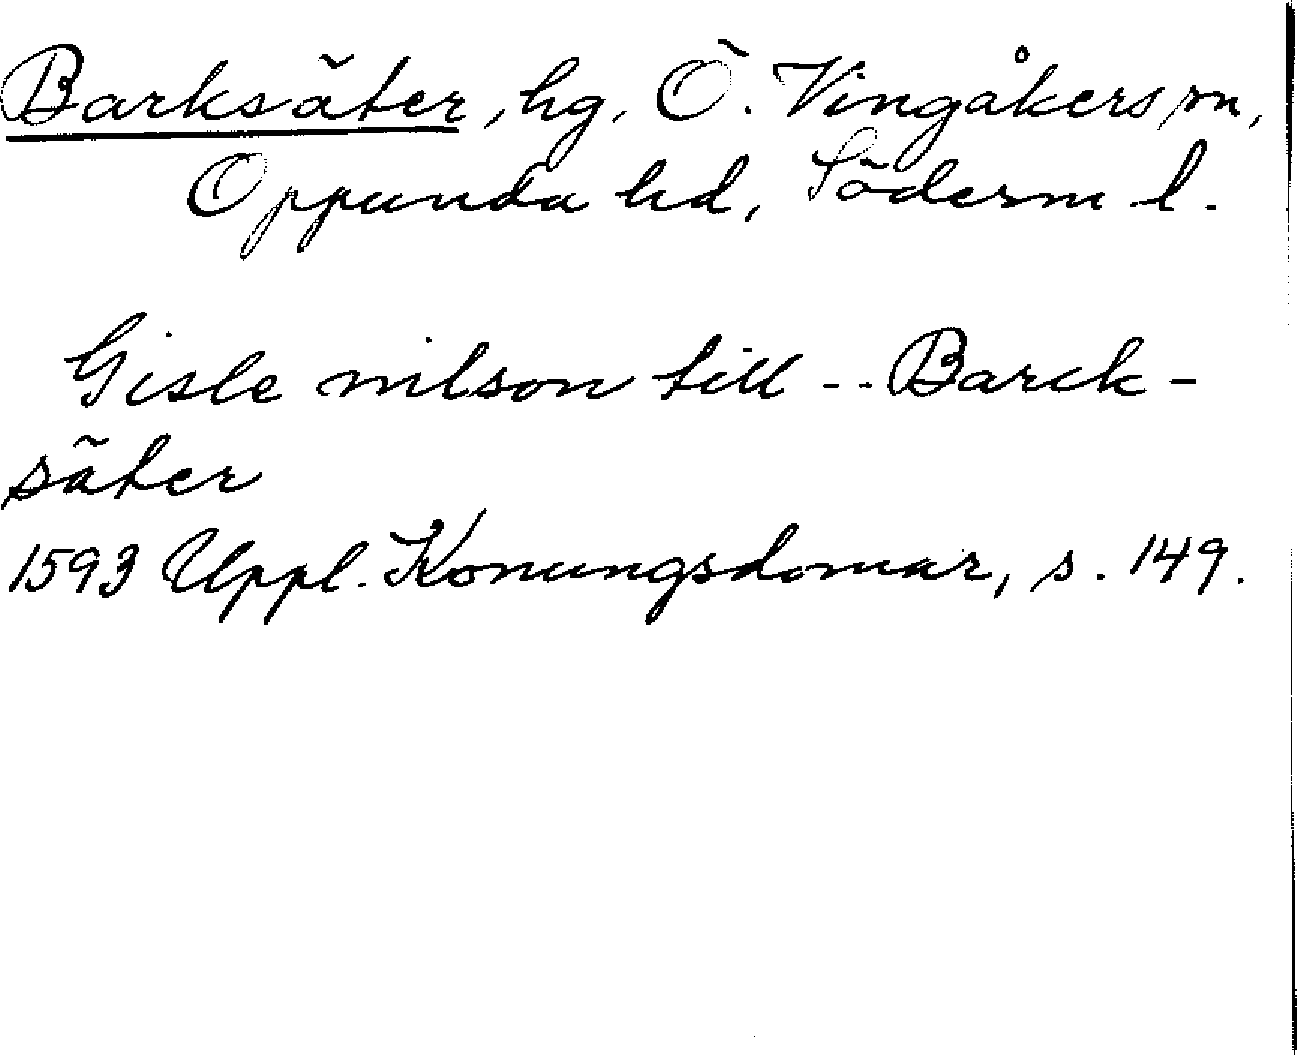 Barksäter, hg, Ö. Vingåkers sn,
Oppunda hd, Söderm l.
Gisle nilson till -- Barck-
säter
1593 Uppl. Konungsdomar, s. 149.